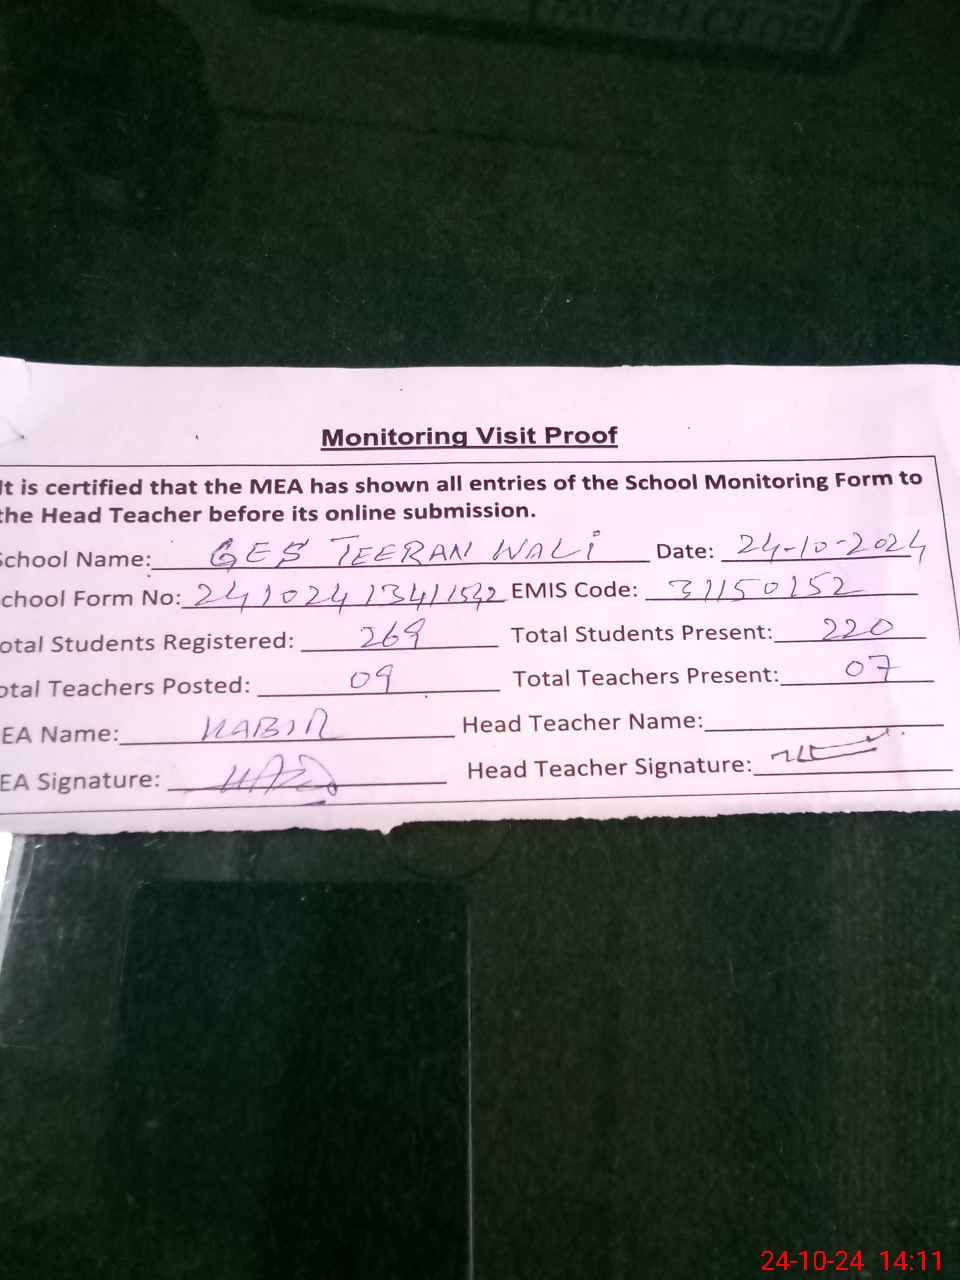 Monitoring Visit Proof
It is certified that the MEA has shown all entries of the School Monitoring Form to
the Head Teacher before its online submission.
School Name: GES TEERAN WALI Date: 24-10-2024
chool Form No: 2410241341152 EMIS Code: 31150152
otal Students Registered: 269 Total Students Present: 220
otal Teachers Posted: 09 Total Teachers Present: 07
EA Name: KABIR Head Teacher Name:
EA Signature: Head Teacher Signature:
24-10-24 14:11